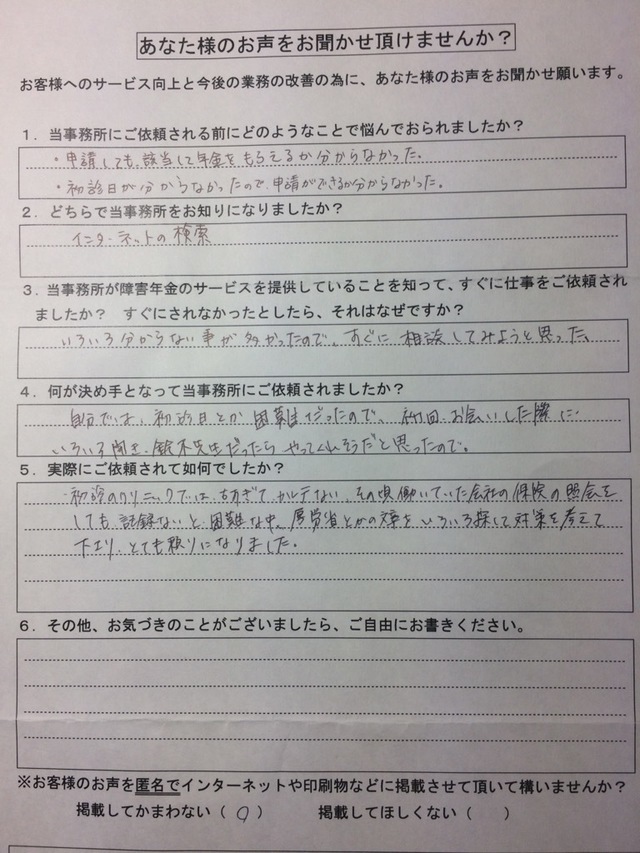 あなた様のお声をお聞かせ頂けませんか?
お客様へのサービス向上と今後の業務の改善の為に、あなた様のお声をお聞かせ願います。
1.当事務所にご依頼される前にどのようなことで悩んでおられましたか?
・申請しても、該当して年金をもらえるか分からなかった。
・初診日が分からなかったので、申請ができるか分からなかった。
2.どちらで当事務所をお知りになりましたか?
インターネットの検索
3.当事務所が障害年金のサービスを提供していることを知って、すぐに仕事をご依頼され
ましたか? すぐにされなかったとしたら、それはなぜですか?
いろいろ分からない事が多かったので、すぐに相談してみようと思った。
4.何が決め手となって当事務所にご依頼されましたか?
自分では、初診日とか困難だったので、初回、お会いした際に
いろいろ聞き、鈴木先生だったらやってくれそうだと思ったので。
5.実際にご依頼されて如何でしたか?
初診のクリニックでは、古すぎてカルテない、その頃働いていた会社の保険の照会を
しても、記録ないと、困難な中、厚労省とかの文章をいろいろ探して対策を考えて
下さり、とても頼りになりました。
6.その他、お気づきのことがございましたら、ご自由にお書きください。
※お客様のお声を匿名でインターネットや印刷物などに掲載させて頂いて構いませんか?
掲載してかまわない( ○ ) 掲載してほしくない( )